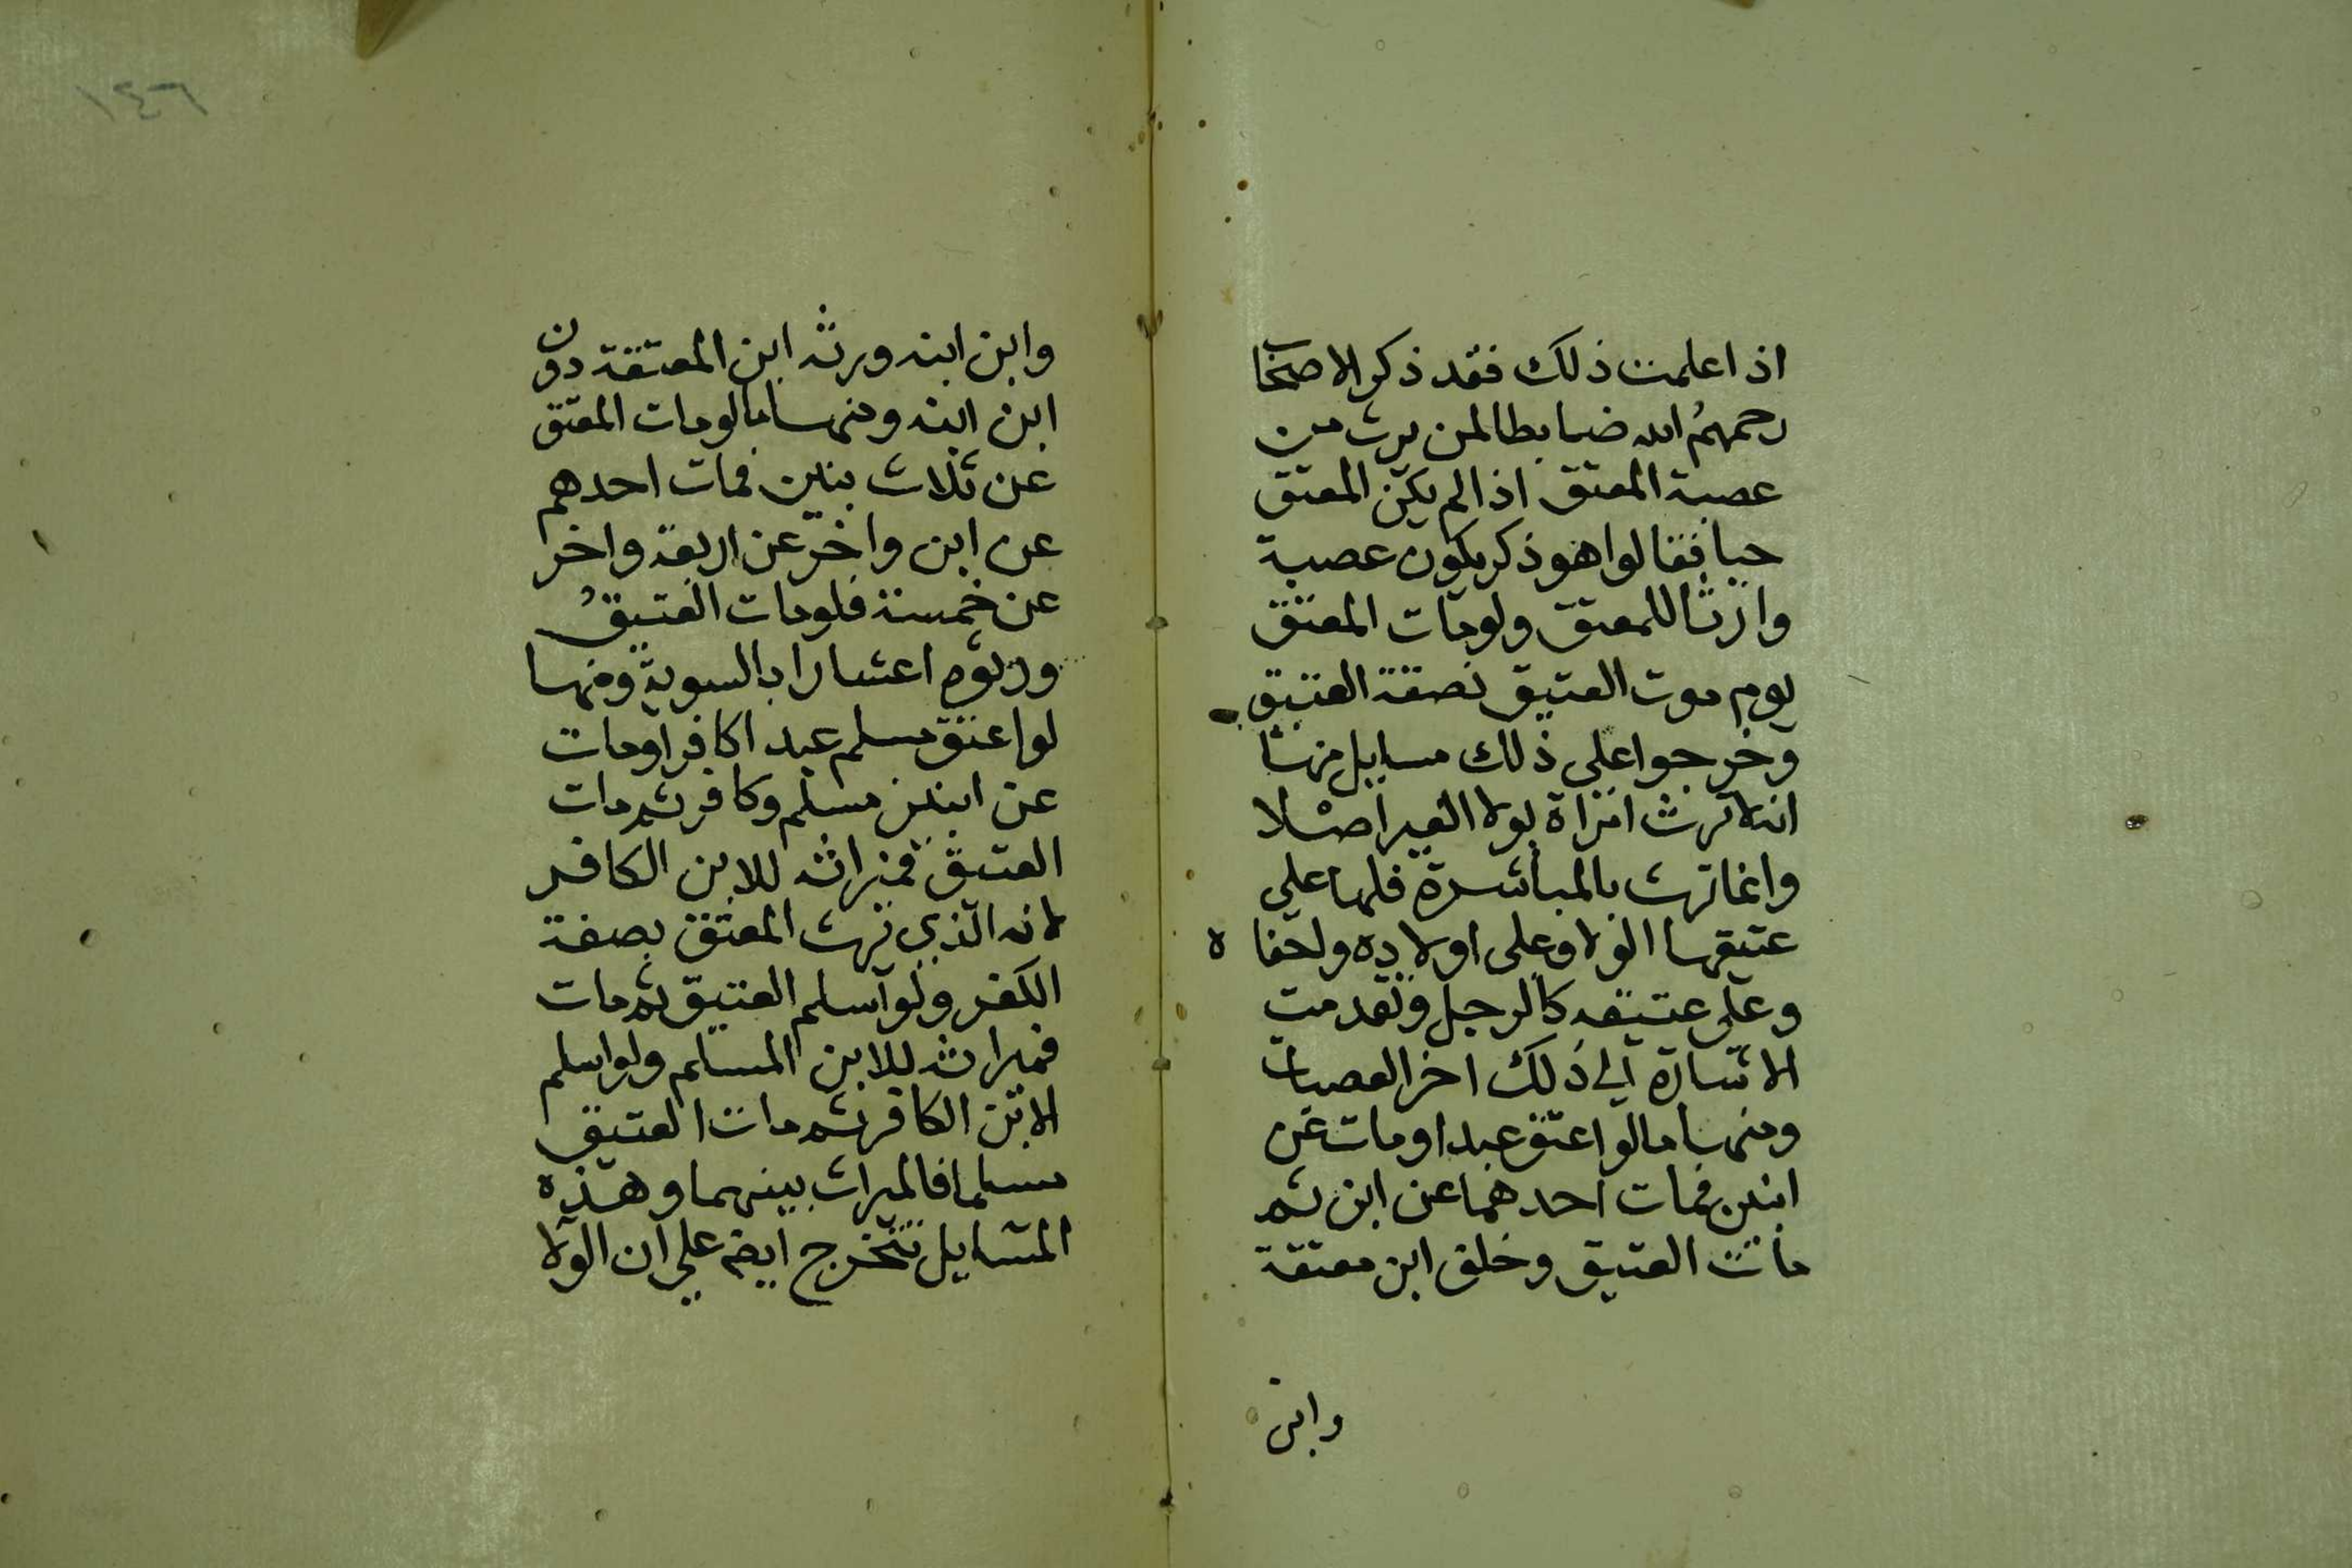 اذا علمت ذلك فقد ذكر الاصحاب
رحمهم الله ضابطا لمن يرث من
عصبة المعتق اذا لم يكن المعتق
حيا فقالوا هو ذكر يكون عصبة
وارثا للمعتق ولو مات المعتق
يوم موت العتيق بصفة العتيق
وخرجوا على ذلك مسايل منها
انه لا ترث امراة بولا الغير اصلا
وانما ترث بالمباشرة فلها على
عتيقها الولا وعلى اولاده واحفاده
وعلى عتيقه كالرجل وتقدمت
الاشارة الي ذلك اخر العصبات
ومنها ما لو اعتق عبدا ومات عن
ابنين فمات احدهما عن ابن ثم
مات العتيق وخلف ابن معتقة
وابن
١٤٦
وابن ابنه ورثه ابن المعتقة دون
ابن ابنه ومنها ما لو مات المعتق
عن ثلاث بنين فمات احدهم
عن ابن واخر عن اربعة واخر
عن خمسة فلو مات العتيق
ورثوه اعشارا بالسوية ومنها
لو اعتق مسلم عبدا كافرا ومات
عن ابنين مسلم وكافر ثم مات
العتيق فميراثه للابن الكافر
لانه الذي يرث المعتق بصفة
الكفر ولو اسلم العتيق ثم مات
فميراثه للابن المسلم ولو اسلم
الابن الكافر ثم مات العتيق
مسلما فالميراث بينهما وهذه
المسايل تتخرج ايضم على ان الولا